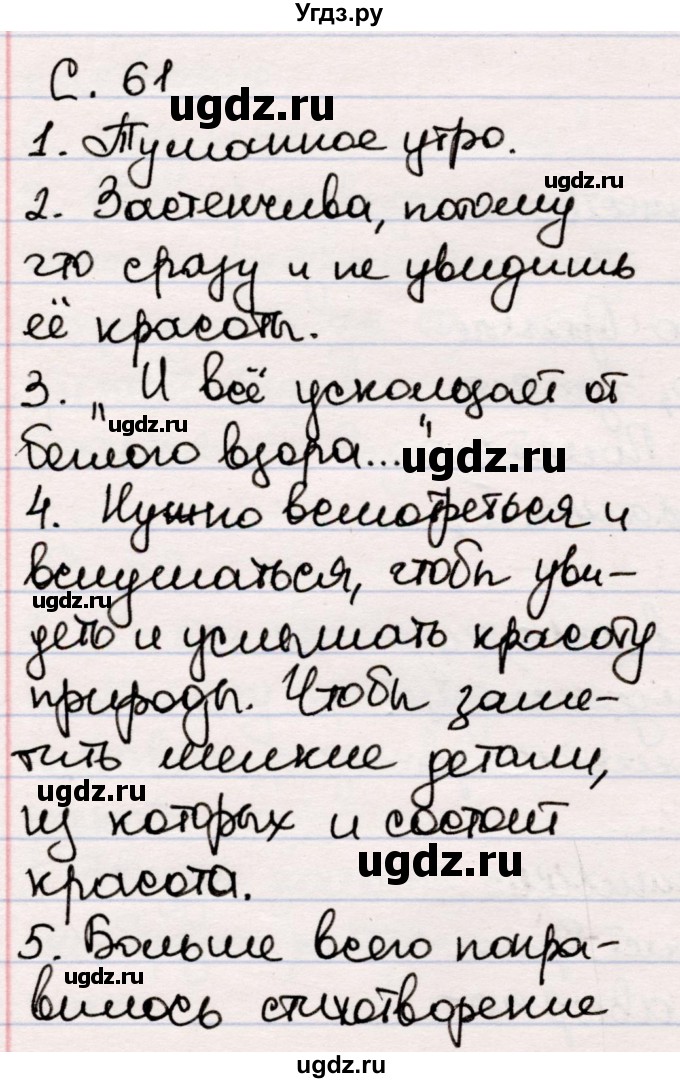 Угдз.ру
С. 61
ugdz.ru
1. Туманное утро.
ugdz.ru
2. Застенчива, потому
что сразу и не увидишь
её красоты.
3. "И всё ускользает от
ugdz.ru
беглого взора..."
ugdz.ru
4. Нужно всмотреться и
вслушаться, чтобы уви-
ugdz.ru
деть и услышать красоту
природы. Чтобы заме-
тить мелкие детали,
ugdz.ru
из которых и состоит
ugdz.ru
красота.
5. Больше всего понра-
ugdz.ru
вилось стихотворение
ugdz.ru